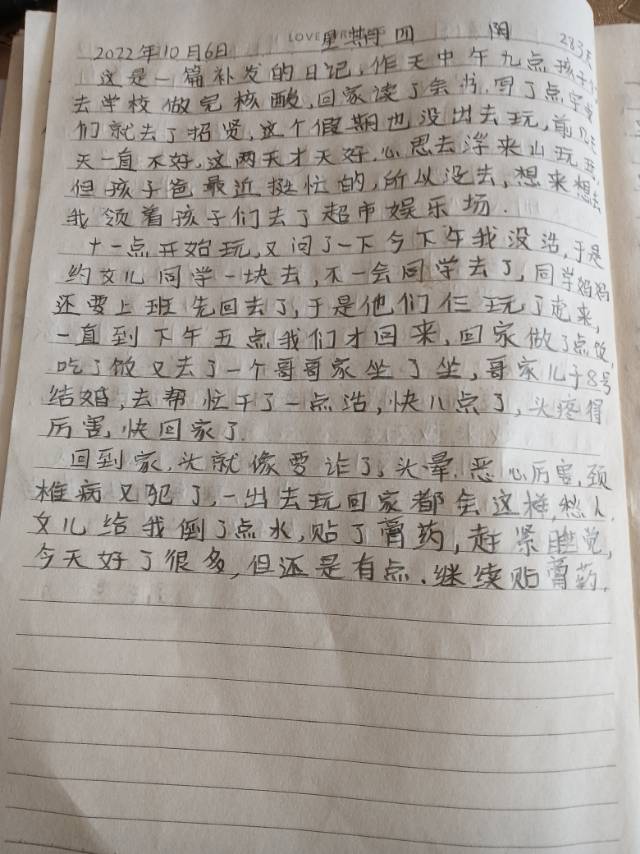 2022年10月6日 星期四 阴 283天
这是一篇补发的日记,作天中午九点孩子们
去学校做完核酸,回家读了会书,写了点字,我
们就去了招贤,这个假期也没出去玩,前几天
天一直不好,这两天才天好,心思去浮来山玩玩,
但孩子爸最近挺忙的,所以没去,想来想去
我领着孩子们去了超市娱乐场.
十一点开始玩,又问了一下今下午我没活,于是
约女儿同学一块去,不一会同学去了,同学妈妈
还要上班先回去了,于是他们仨玩了起来,
一直到下午五点我们才回来,回家做了点饭
吃了饭又去了一个哥哥家坐了坐,哥家儿子8号
结婚,去帮忙干了一点活,快八点了,头疼得
厉害,快回家了.
回到家,头就像要诈了,头晕.恶心厉害,颈
椎病又犯了,一出去玩回家都会这样,愁人,
女儿给我倒了点水,贴了膏药,赶紧睡觉,
今天好了很多,但还是有点.继续贴膏药.